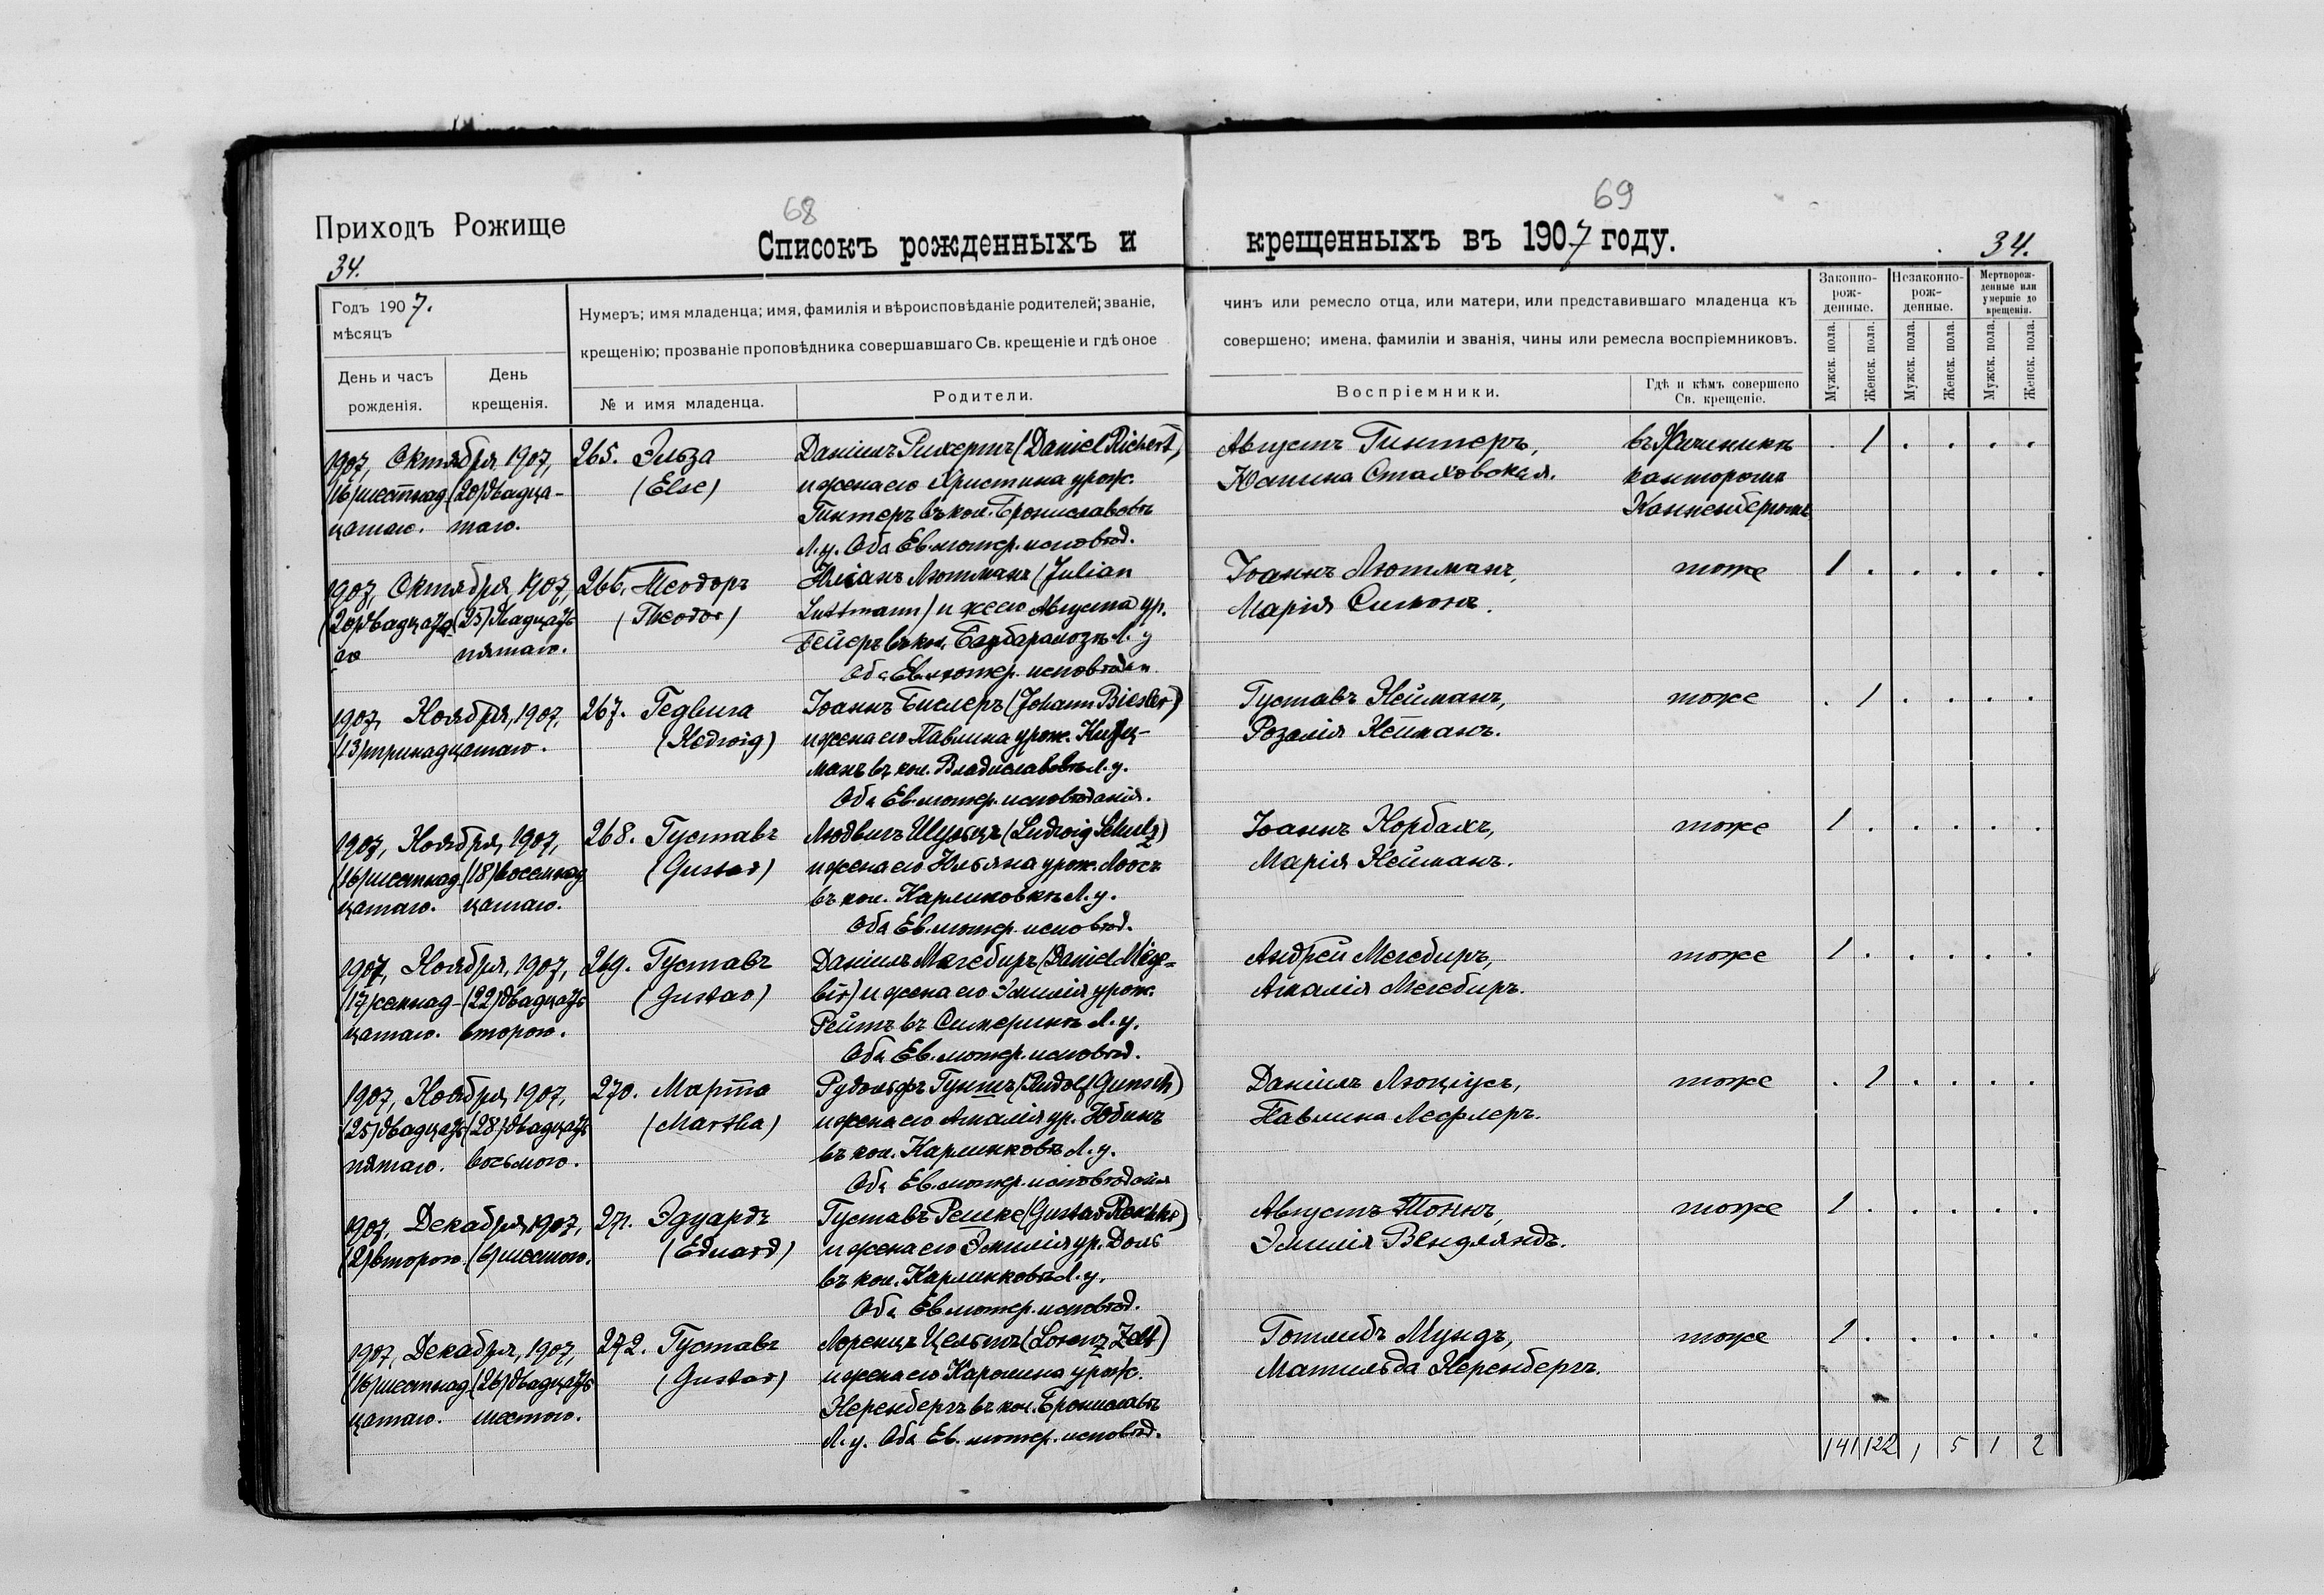 68
69
Приходъ Рожище
Списокъ рожденныхъ и крещенныхъ въ 1907 году.
34.
34.
Годъ 1907.
мѣсяцъ
День и часъ рожденія.
День крещенія.
Нумеръ; имя младенца; имя, фамилія и вѣроисповѣданіе родителей; званіе,
крещенію; прозваніе проповѣдника совершавшаго Св. крещеніе и гдѣ оное
№ и имя младенца.
Родители.
чинъ или ремесло отца, или матери, или представившаго младенца къ
совершено; имена, фамиліи и званія, чины или ремесла воспріемниковъ.
Воспріемники.
Гдѣ и кѣмъ совершено Св. крещеніе.
Законно-рож-денные.
Незаконно-рож-денные.
Мертворож-денные или умершіе до крещенія.
Мужск. пола.
Женск. пола.
Мужск. пола.
Женск. пола.
Мужск. пола.
Женск. пола.
1907, Октября, 1907, 265. Эльза Даніилъ Рихертъ (Daniel Richert) Августъ Гинтеръ, 1
(16) шестнад- (20) двадца- (Else) и жена его Христина урож. Юлина Стаховская. канторомъ
цатаго. таго. Гинтеръ въ кол. Брониславовѣ
Л. у. Оба Ев. лютер. исповѣд.
1907, Октября, 1907, 266. Теодоръ Юліанъ Лютманъ (Julian Іоаннъ Лютманъ, тоже 1
(20) двадцата- (25) двадцать (Theodor) Luttmann) и ж его Августа ур. Марія Симонъ.
го пятаго. Бейеръ въ кол. Л. у
Оба Ев. лютер. исповѣдан
1907, Ноября, 1907, 267. Гедвига Іоаннъ Бислеръ (Johann Biesler) Густавъ Нейманъ, тоже 1
(13) тринадцатаго. (Hedwig) и жена его Павлина урож. Розалія Нейманъ.
манъ въ кол. Владиславовкѣ Л. у.
Оба Ев. лютер. исповѣданія.
1907, Ноября, 1907, 268. Густавъ Людвигъ Шульцъ (Ludwig Schulz) Іоаннъ Корбахъ, тоже 1
(16) шестнад- (18) восемнад (Gustav) и жена его Юльяна урож. Лоосъ Марія Нейманъ.
цатаго. цатаго. въ кол. Карлиновкѣ Л. у.
Оба Ев. лютер. исповѣд.
1907, Ноября, 1907, 269. Густавъ Даніилъ Мегебиръ (Daniel Mege- Андрей Мегебиръ, тоже 1
(17) семнад- (22) двадцать (Gustav) bir) и жена его Эмилія урож. Амалія Мегебиръ.
цатаго. второго. Рейтъ въ Л. у.
Оба Ев. лютер. исповѣд.
1907, Ноября, 1907, 270. Марта Рудольфъ Гуншъ (Rudolf Gunsch) Даніилъ Люціусъ, тоже 1
(25) двадцать (28) двадцать (Martha) и жена его Амалія ур. Юбинъ Павлина Лефлеръ.
пятаго. восьмого. въ кол. Карлинковѣ Л. у.
Оба Ев. лютер. исповѣданія
1907, Декабря, 1907, 271. Эдуардъ Густавъ Решке (Gustav Reschke) Августъ Тоннъ, тоже 1
(2) второго. (6) шестого. (Eduard) и жена его Эмилія ур. Доль Эмилія Вендляндъ.
въ кол. Карлинковѣ Л. у.
Оба Ев. лютер. исповѣд.
1907, Декабря, 1907, 272. Густавъ Лоренцъ Цельтъ (Lorenz Zelt) Готлибъ Мундъ, тоже 1
(16) шестнад (26) двадцать (Gustav) и жена его Каролина урож. Матильда Неренбергъ.
цатаго. шестого. Неренбергъ въ кол. Брониславѣ
Л. у. Оба Ев. лютер. исповѣд.
141 122 1 5 1 2